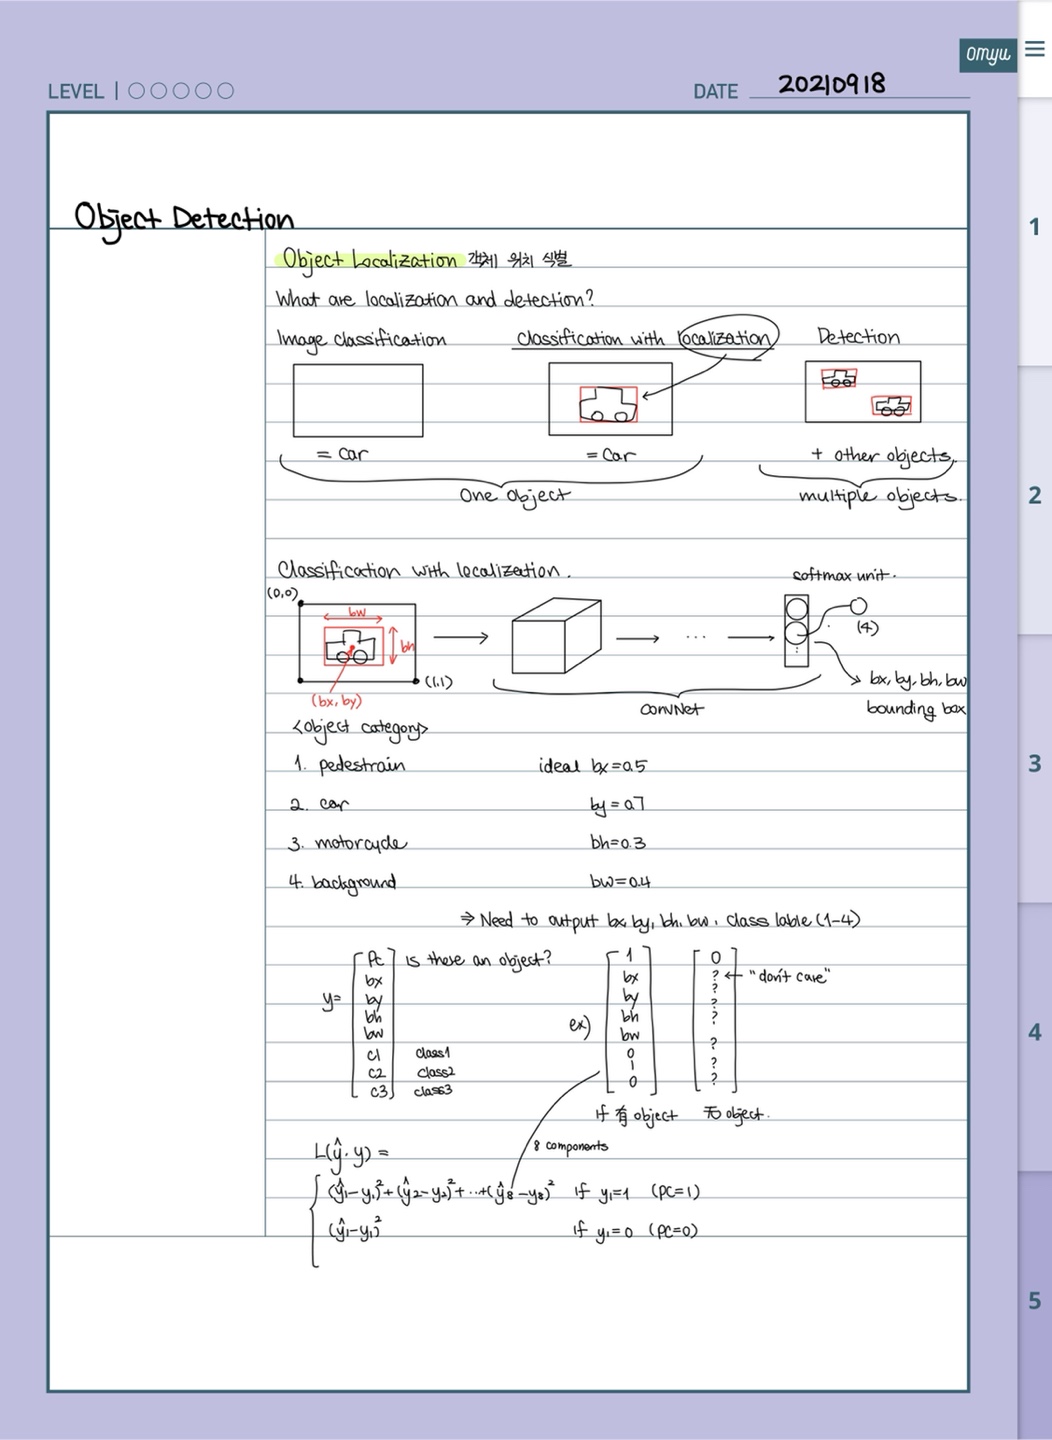 omyu
LEVEL | ○○○○○
DATE 20210918
Object Detection
Object Localization 객체 위치 식별
What are localization and detection?
Image classification
Classification with localization
Detection
= Car
= Car
+ other objects.
One object
multiple objects.
Classification with localization.
softmax unit.
(0,0)
bw
bh
(4)
(bx, by)
(1,1)
bx, by, bh, bw
bounding box
...
ConvNet
<object category>
1. pedestrain
ideal bx=0.5
2. car
by=0.7
3. motorcycle
bh=0.3
4. background
bw=0.4
⇒ Need to output bx, by, bh, bw, class lable (1-4)
y=
Pc Is these an object?
bx
by
bh
bw
c1 class1
c2 class2
c3 class3
ex)
1
bx
by
bh
bw
0
1
0
0
? ← "don't care"
?
?
?
?
?
?
If 有 object
无 object.
8 components
L(ŷ, y) =
(ŷ1-y1)²+(ŷ2-y2)²+...+(ŷ8-y8)² if y1=1 (PC=1)
(ŷ1-y1)² if y1=0 (PC=0)
1
2
3
4
5